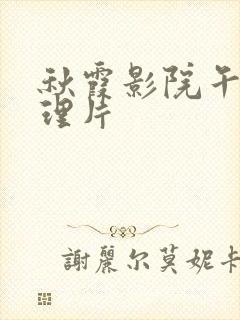 秋霞影院午
理片
謝麗尔莫妮卡